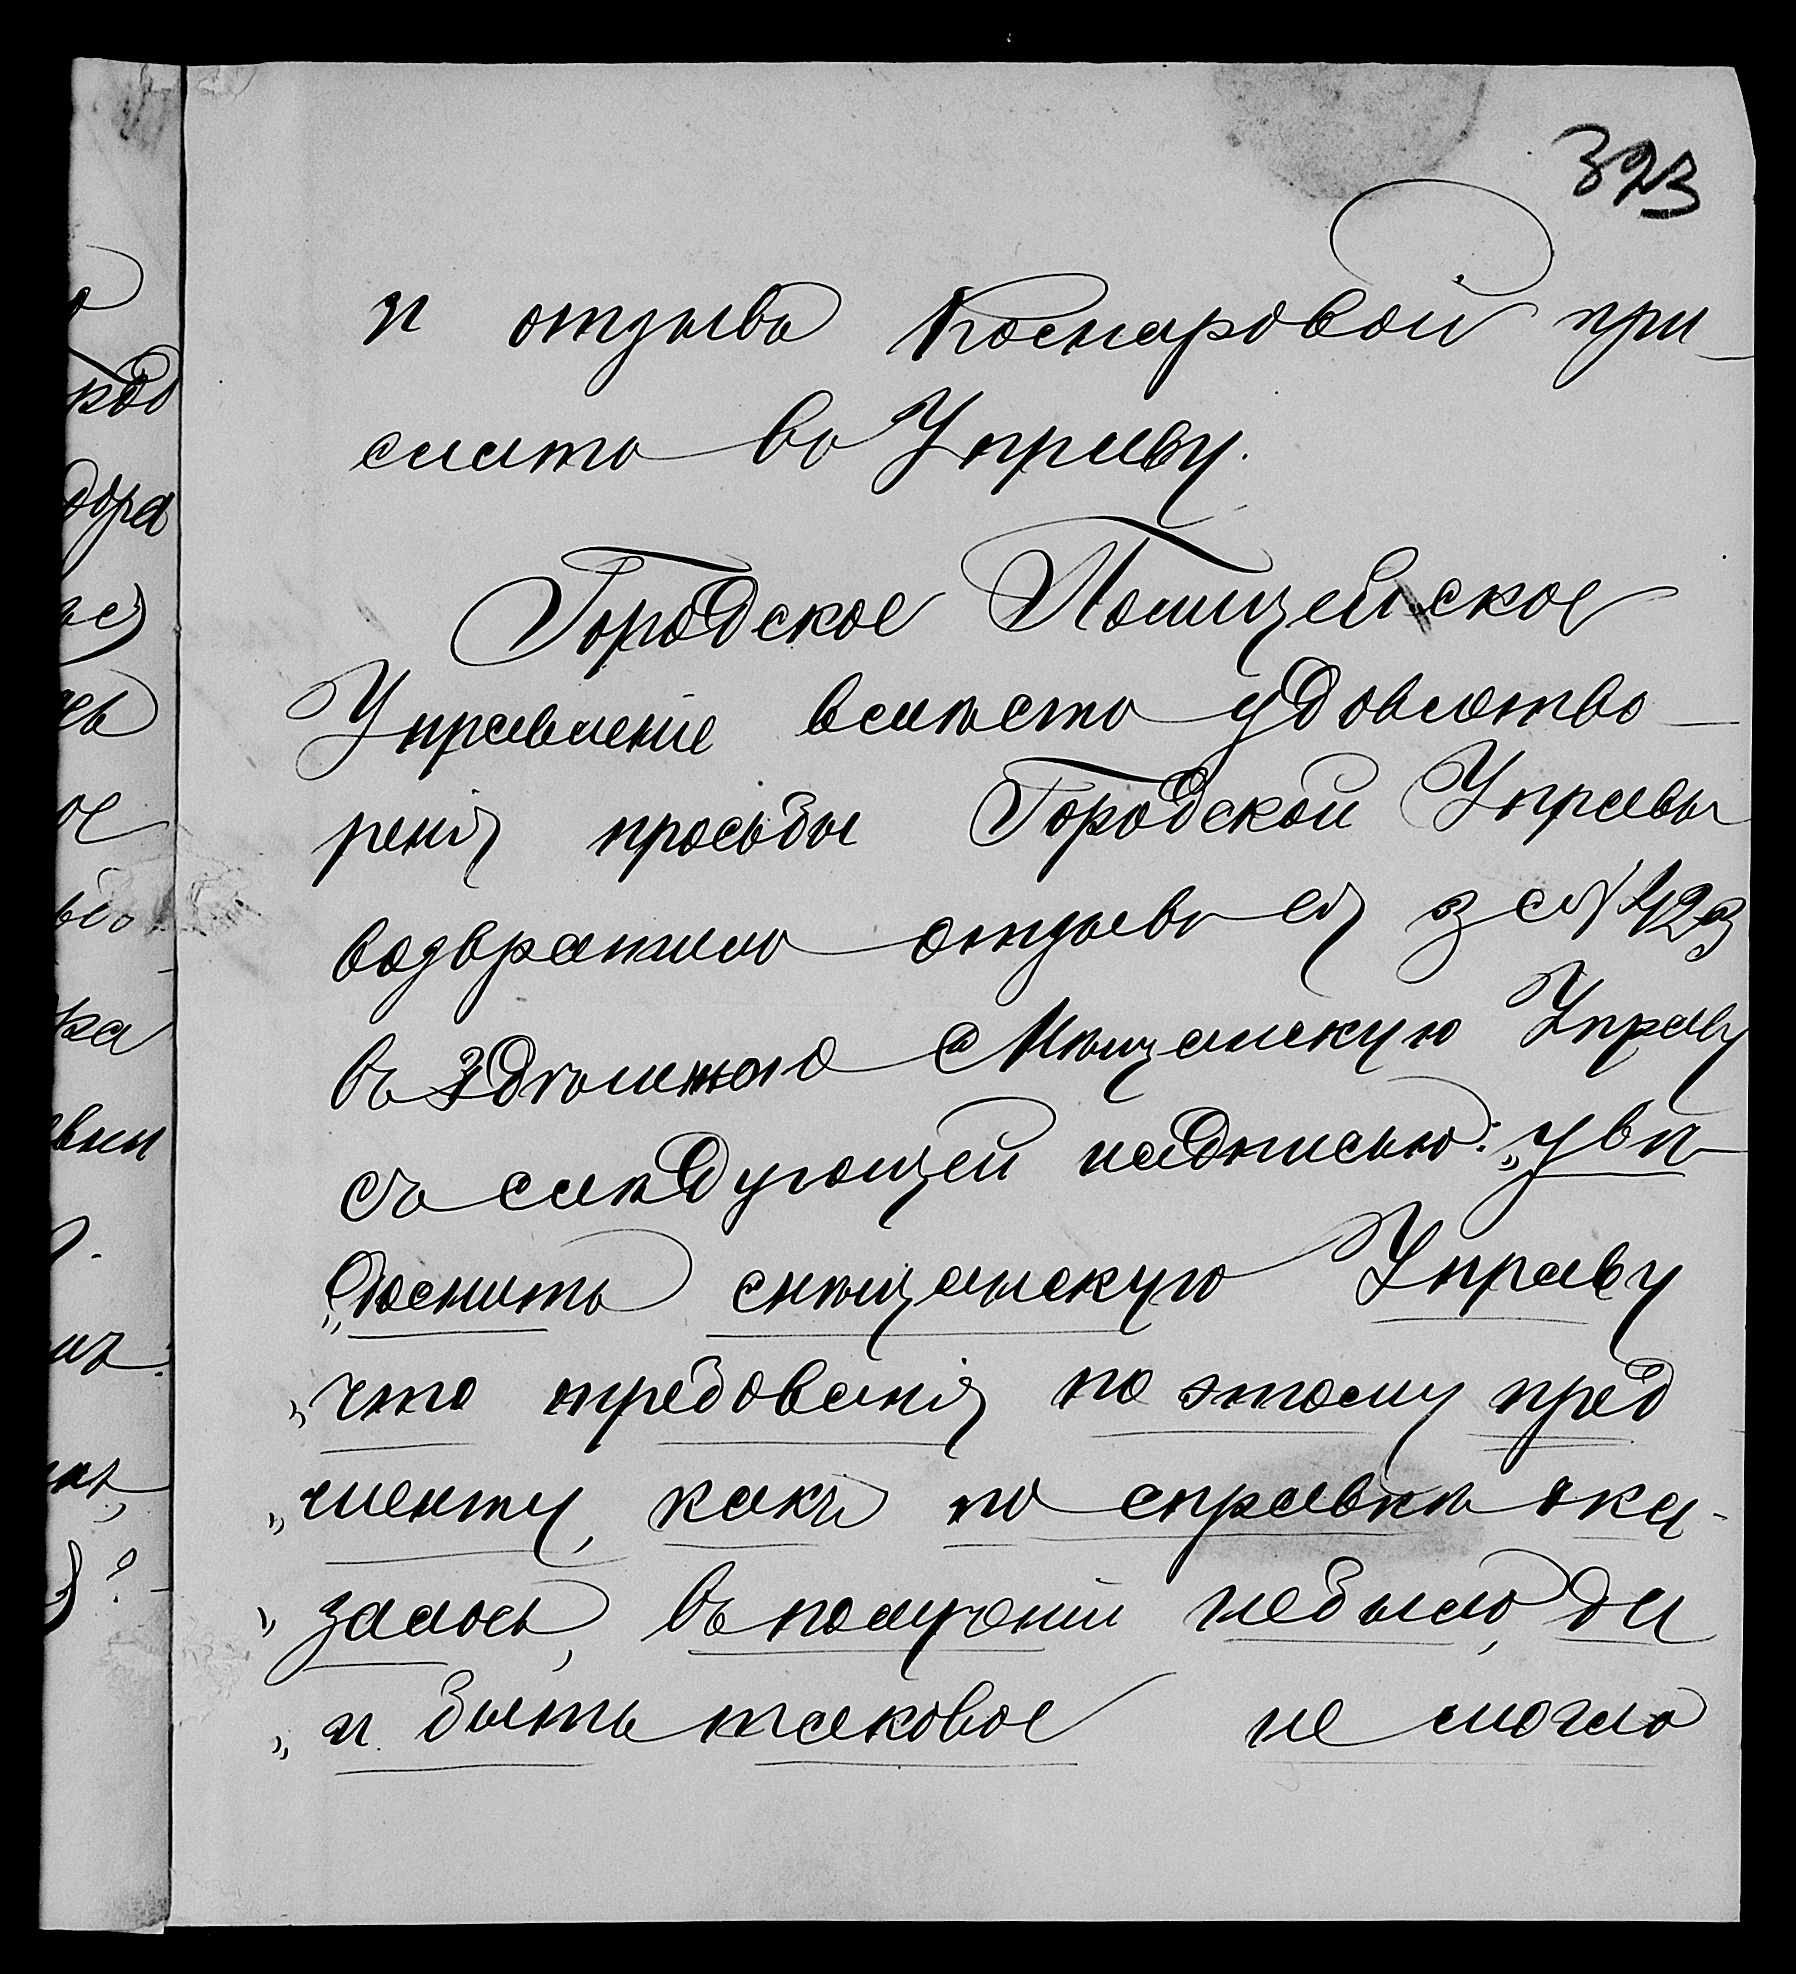 323
и отзывъ Комаровой при-
слать въ Управу.
Городское Полицейское
Управленіе вмѣсто удовлетво-
ренія просьбы Городской Управы
возвратило отзывъ ея за №423
въ здѣшнюю Мѣщанскую Управу
съ слѣдующей надписью: „увѣ-
„домить мѣщанскую Управу
„что требованія по этому пред
„менту, какъ по справкѣ ока-
„залось, въ полученіи небыло, да
„и быть таковое не могло